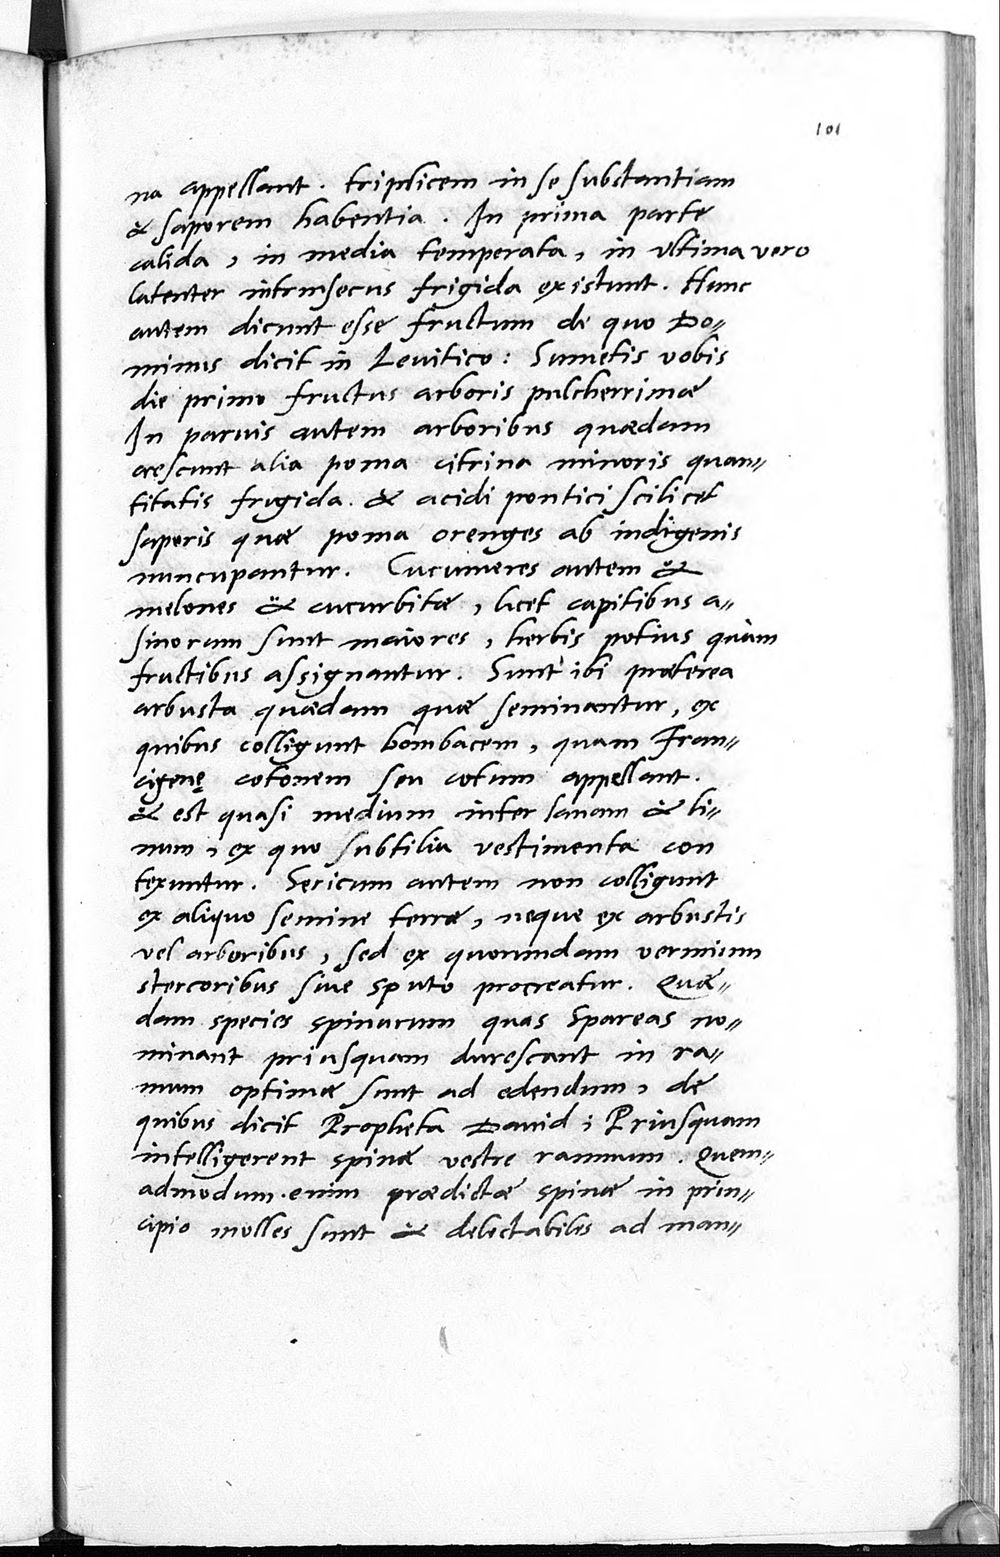 101
na appellant. triplicem in se substantiam
& saporem habentia. In prima parte
calida, in media temperata, in ultima vero
latenter intrinsecus frigida existunt. Hunc
autem dicunt esse fructum de quo Do„
minus dicit in Levitico: Sumetis vobis
die primo fructus arboris pulcherrimæ
In parvis autem arboribus quædam
crescunt alia poma citrina minoris quan„
titatis frigida. & acidi pontici scilicet
saporis quæ poma orenges ab indigenis
nuncupantur. Cucumeres autem &
melones & cucurbitæ, licet capitibus a„
sinorum sunt maiores, herbis potius quàm
fructibus assignantur. Sunt ibi præterea
arbusta quædam quæ seminantur, ex
quibus colligunt bombacem, quam Fran„
cigenę cotonem seu cotum appellant.
& est quasi medium inter lanam & li„
num, ex quo subtilia vestimenta con
texuntur. Sericum autem non colligunt
ex aliquo semine terræ, neque ex arbustis
vel arboribus, sed ex quorundam vermium
stercoribus sive sputo procreatur. Quæ„
dam species spinarum quas Spareas no„
minant priusquam durescant in ra„
mum optimæ sunt ad edendum, de
quibus dicit Propheta David; Priusquam
intelligerent spinæ vestre ramnum. Quem„
admodum. enim prædictæ spinæ in prin„
cipio molles sunt & delectabiles ad man„